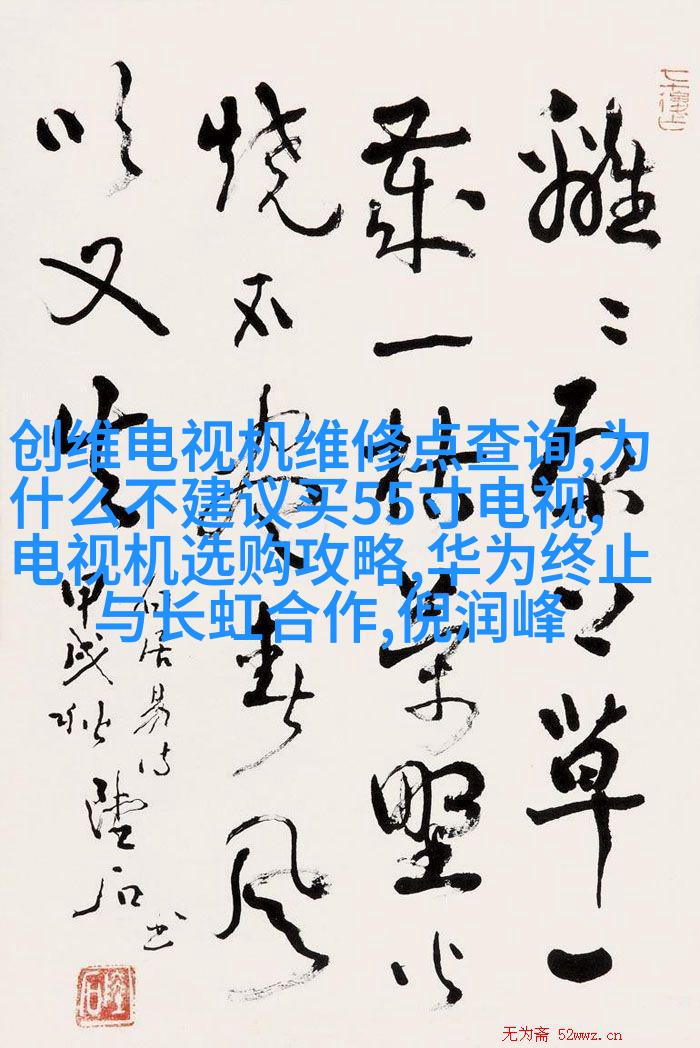 離〻原上草一
歲一枯榮野火
燒不盡春風
吹又生
白居易诗
甲戌秋
陸石书
创维电视机维修点查询,为
什么不建议买55寸电视,
电视机选购攻略,华为终止
与长虹合作,倪润峰
无为斋 52wwz.cn